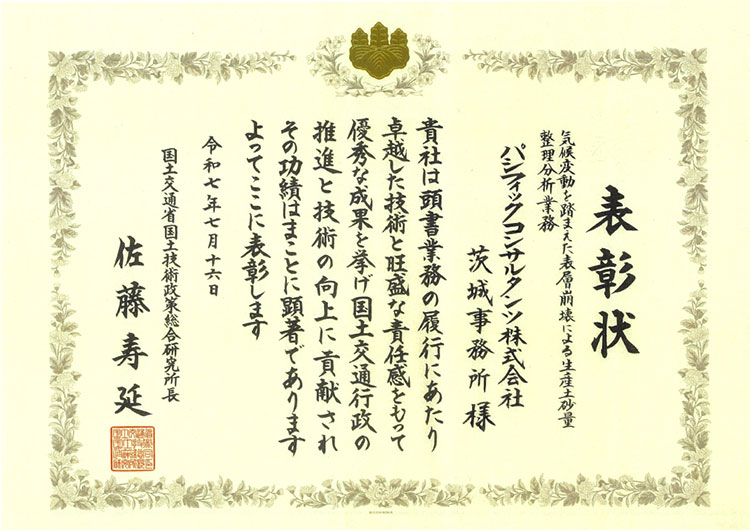 表彰状
気候変動を踏まえた表層崩壊による生産土砂量
整理分析業務
パシフィックコンサルタンツ株式会社
茨城事務所様
貴社は頭書業務の履行にあたり
卓越した技術と旺盛な責任感をもって
優秀な成果を挙げ国土交通行政の
推進と技術の向上に貢献され
その功績はまことに顕著であります
よってここに表彰します
令和七年七月十六日
国土交通省国土技術政策総合研究所長
佐藤寿延